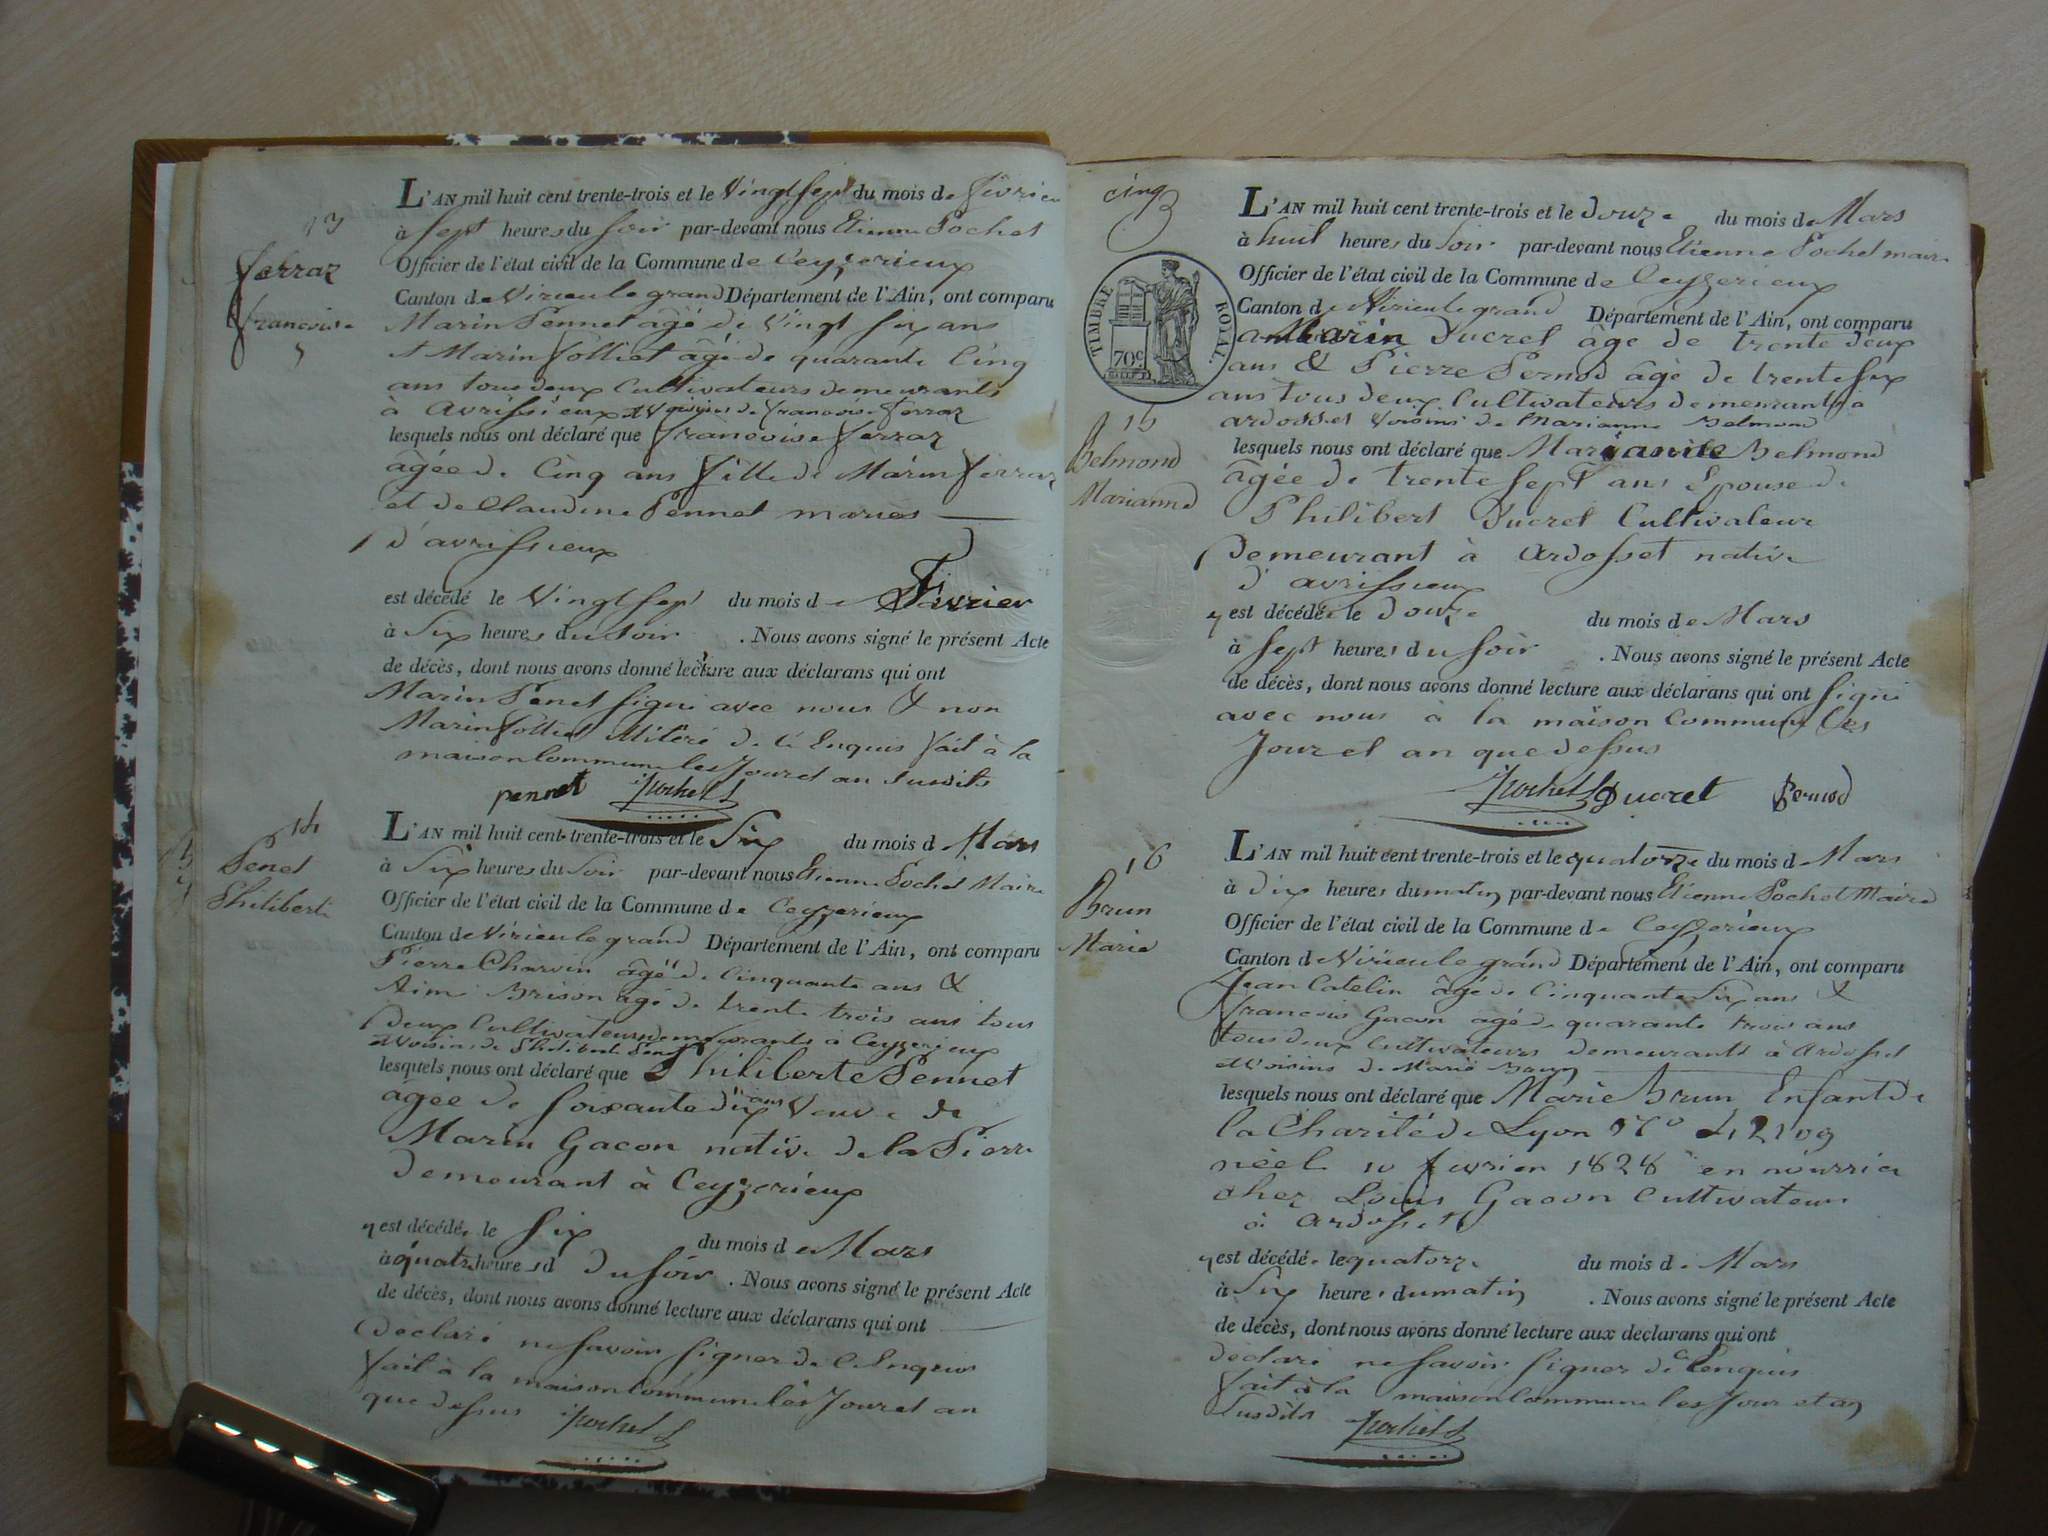 13
ferraz
francoise
L'AN mil huit cent trente-trois et le Vingt Sept du mois de fevrier
à Sept heures du soir par-devant nous Etienne Pochet
Officier de l'état civil de la Commune de Ceyzerieux
Canton de Virieu le grand Département de l'Ain, ont comparu
Marin Pennet âgé de Vingt six ans
et Marin folliet âgé de quarante Cinq
ans tous deux Cultivateurs demeurants
à Avrissieux et Voisins de francoise ferraz
lesquels nous ont déclaré que francoise ferraz
âgée de Cinq ans fille de Marin ferraz
et de Claudine Pennet mariés
d'avrissieux
est décédé le Vingt sept du mois de Fevrier
à Six heures du soir . Nous avons signé le présent Acte
de décès, dont nous avons donné lecture aux déclarans qui ont
Marin Penet signé avec nous & non
Marin folliet illiteré de ce Enquis fait à la
maison Commune les Jour et an susdits
pennet Pochet
14
Penet
Philiberte
L'AN mil huit cent trente-trois et le Six du mois d Mars
à Six heures du Soir par-devant nous Etienne Pochet Maire
Officier de l'état civil de la Commune de Ceyzerieux
Canton de Virieu le grand Département de l'Ain, ont comparu
Pierre Charvin âgé de cinquante ans &
Aimé Brison agé de trente trois ans tous
Deux Cultivateurs demeurants à Ceyzerieux
et Voisins de Philiberte Penet
lesquels nous ont déclaré que Philiberte Pennet
âgée de soixante dix ans Veuve de
Marin Gacon native de la Pierre
demeurant à Ceyzerieux
y est décédée le six du mois de Mars
à quatre heures d du soir . Nous avons signé le présent Acte
de décès, dont nous avons donné lecture aux déclarans qui ont
declaré ne savoir signer de ce Enquis
fait à la maison Commune les Jour et an
que dessus Pochet
cinq
TIMBRE ROYAL.
70c
15
Belmond
Marianne
L'AN mil huit cent trente-trois et le douze du mois de Mars
à huit heures du soir par-devant nous Etienne Pochet maire
Officier de l'état civil de la Commune de Ceyzerieux
Canton de Virieu le grand Département de l'Ain, ont comparu
Marin Ducret âge de trente deux
ans & Pierre Pernod âgé de trente six
ans tous deux Cultivateurs demeurants a
ardosset Voisins de Marianne Belmond
lesquels nous ont déclaré que Marianne Belmond
âgée de trente sept ans Epouse de
Philibert Ducret Cultivateur
Demeurant à Ardosset native
d'avrissieux
y est décédée le douze du mois de Mars
à Sept heures du soir . Nous avons signé le présent Acte
de décès, dont nous avons donné lecture aux déclarans qui ont signé
avec nous à la maison Commune les
Jour et an que dessus
Pochet Ducret Pernod
16
Brun
Marie
L'AN mil huit cent trente-trois et le quatorze du mois d Mars
à Dix heures du matin par-devant nous Etienne Pochet Maire
Officier de l'état civil de la Commune de Ceyzerieux
Canton de Virieu le grand Département de l'Ain, ont comparu
Jean Catelin âgé de Cinquante Six ans &
francois Gacon agé de quarante trois ans
tous deux Cultivateurs demeurants à Ardosset
et Voisins de Marie Brun
lesquels nous ont déclaré que Marie Brun Enfant de
la Charité de Lyon
néé le 10 fevrier 1828 en nourrice
chez Louis Gacon Cultivateur
à Ardosset
y est décédée le quatorze du mois de Mars
à Six heures du matin . Nous avons signé le présent Acte
de décès, dont nous avons donné lecture aux declarans qui ont
declaré ne savoir signer de ce Enquis
fait à la maison Commune les Jour et an
Susdits Pochet